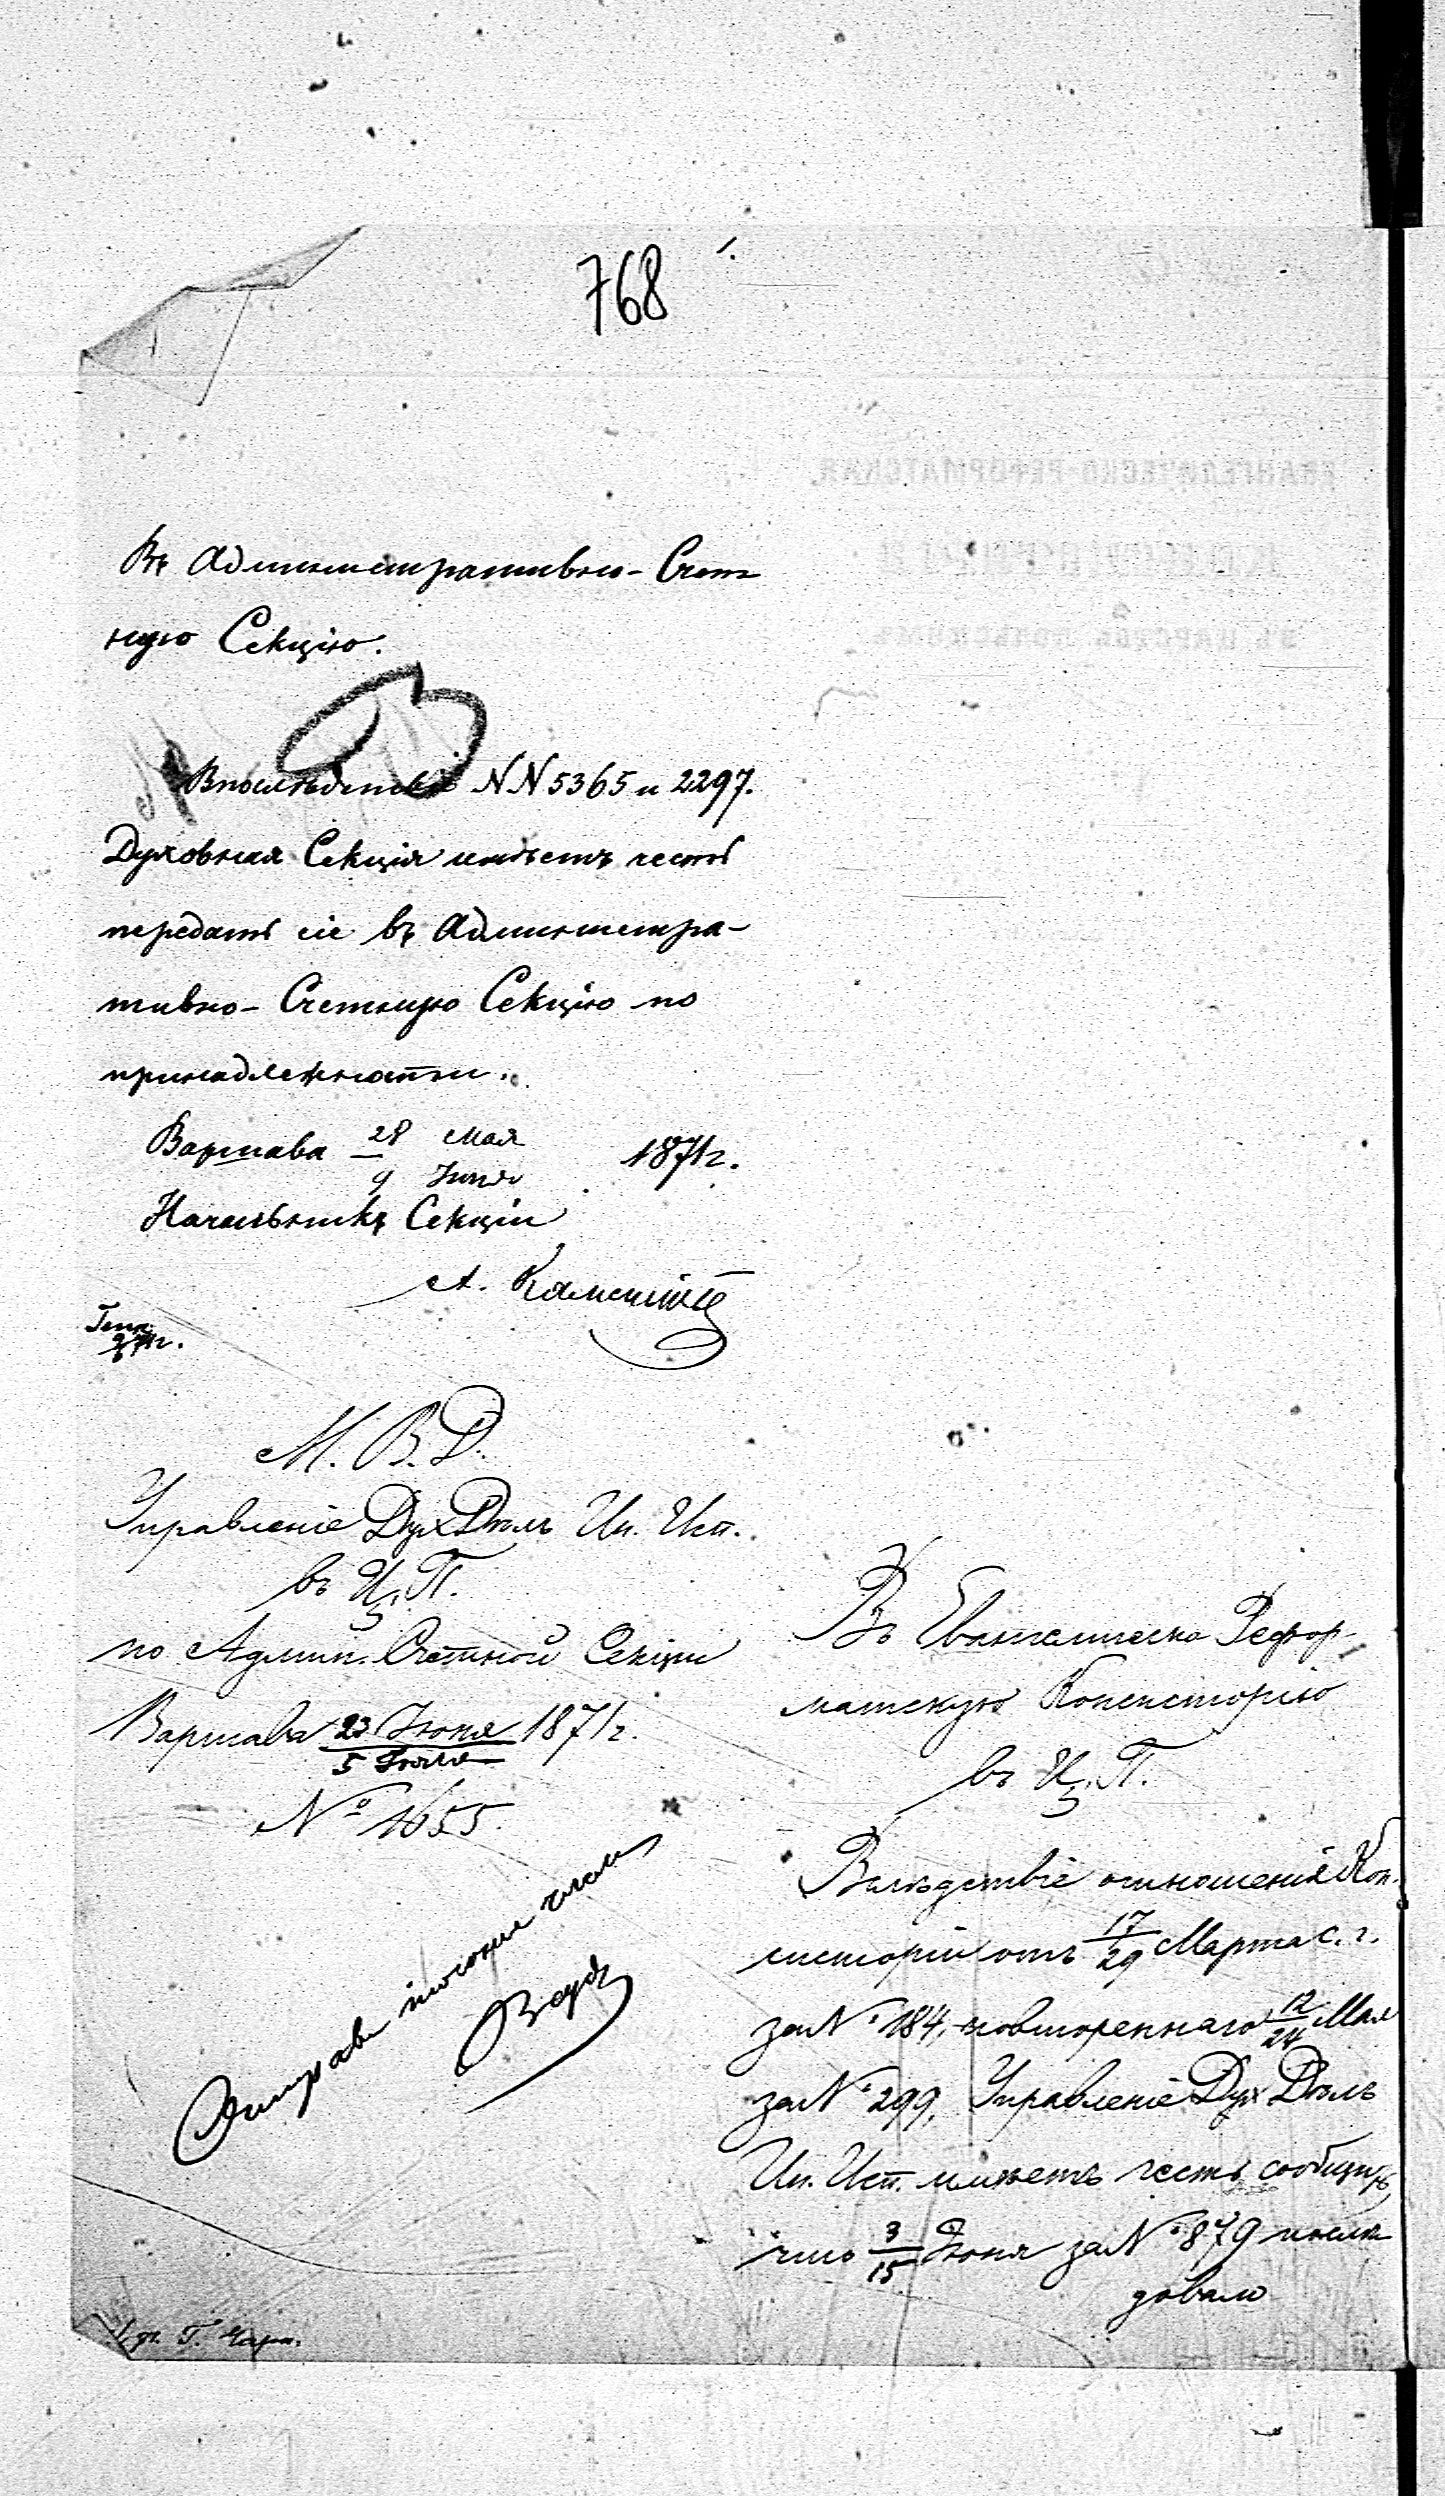 768
Въ Административно-Счет
ную Секцію.
NN 5365 и 2297.
Духовная Секція имѣетъ честь
передать сіе въ Администра-
тивно-Счетную Секцію по
принадлежности.
Варшава 28 Мая / 9 Іюня 1871 г.
Начальникъ Секціи
А.
М. В. Д.
Управленіе Дух Дѣлъ Ин. Исп.
въ Ц. П.
по Админ. Счетной Секціи
Варшава 23 Іюня / 5 Іюля 1871 г.
№ 1655.
Въ Евангелическо Рефор-
матскую Консисторію
въ Ц. П.
Вслѣдствіе отношенія Кон-
систоріи отъ 17/29 Марта с. г.
за № 184, повтореннаго 12/24 Мая
за № 299, Управленіе Дух Дѣлъ
Ин. Исп. имѣетъ честь сообщить,
что 3/15 Іюня за № 879 послѣ
довало